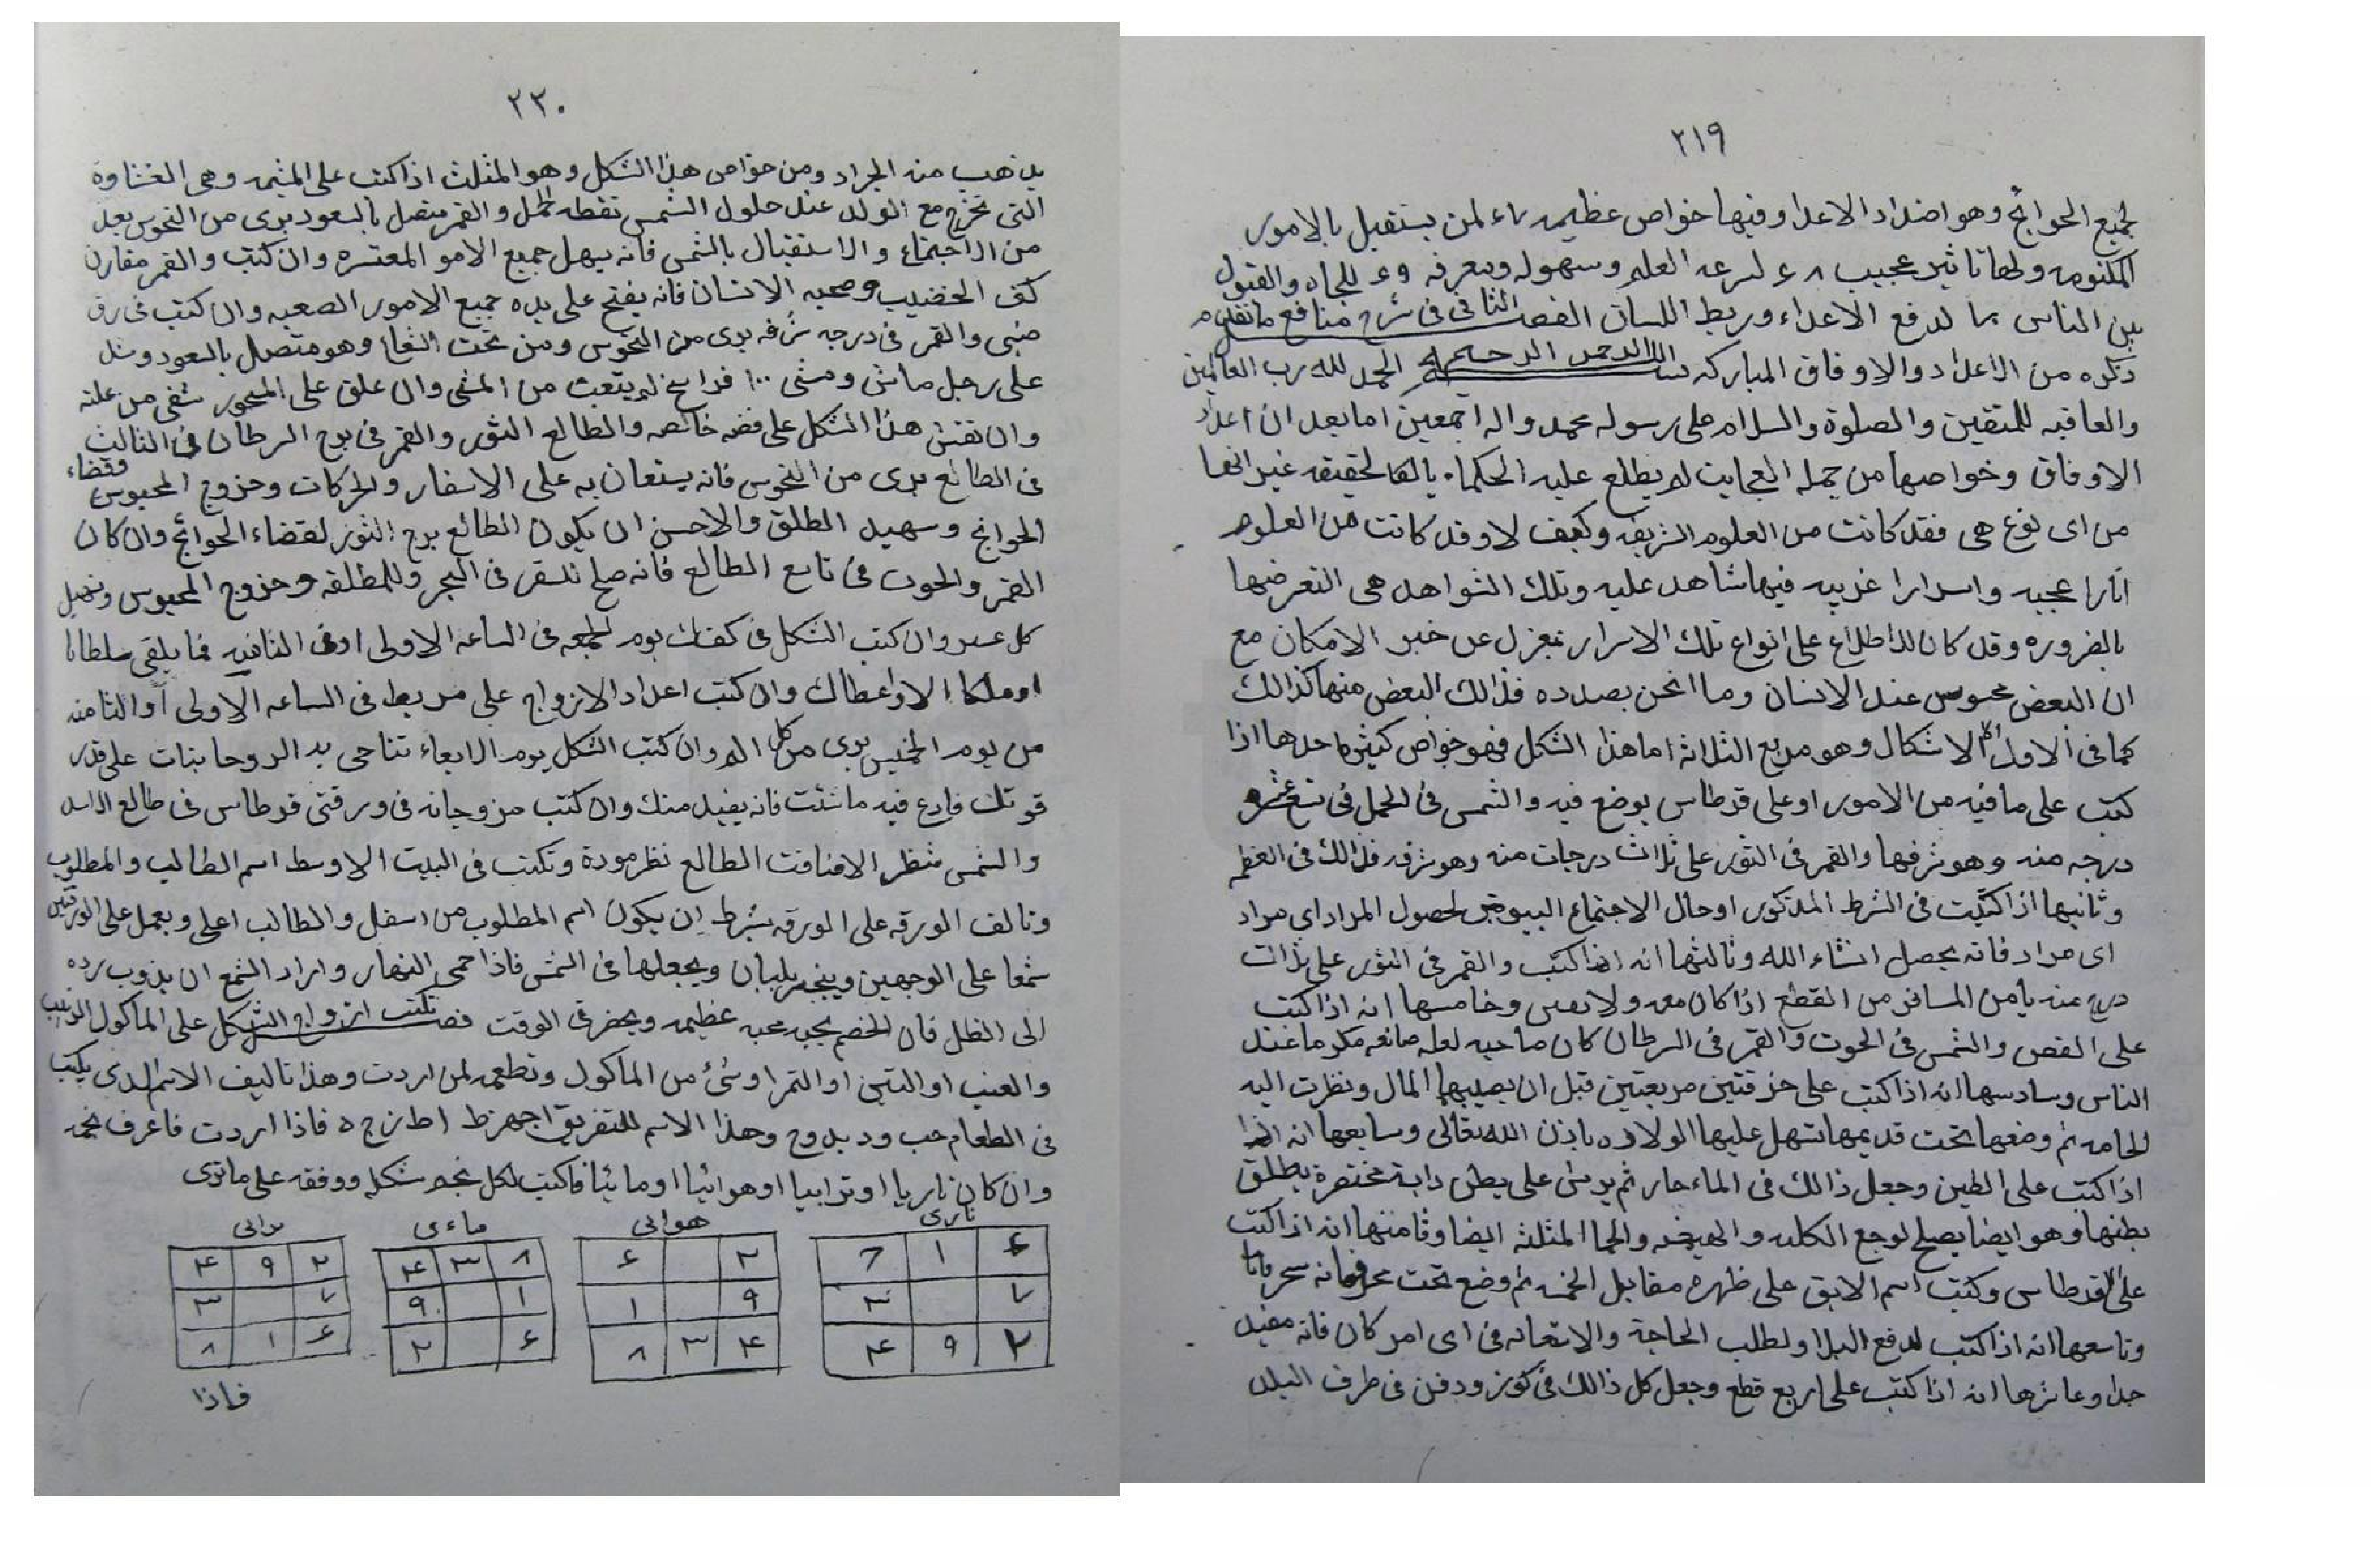 ٢١٩
لجميع الحوائج وهو اضداد الاعداد وفيها خواص عظيمه لمن يستقبل بالامور
المكنومه ولها تاثير عجيب ٨ ٤ لسرعه العلم وسهوله ومعرفه و٤ للجاه والقبول
بين الناس لدفع الاعداء وربط اللسان الفصل الثاني في شرح منافع ما تقدم
ذكره من الاعداد والاوفاق المباركه بسم الله الرحمن الرحيم الحمد لله رب العالمين
والعاقبه للمتقين والصلوة والسلام على رسوله محمد واله اجمعين اما بعد ان اعداد
الاوفاق وخواصها من جمله العجايب لم يطلع عليه الحكماء غير انها
من اى نوع هى فقد كانت من العلوم الشريفه وكيف لا وقد كانت من العلوم
اثارا عجبه واسرارا غريبه فيها شاهد عليه وتلك الشواهد هى التعرضها
بالضروره وقد كان الاطلاع على انواع تلك الاسرار بمعزل عن خبر الامكان مع
ان البعض محسوس عند الانسان وما نحن بصدده فذالك البعض منها كذالك
كما فى الاول الاشكال وهو مربع الثلاثه اما هذا الشكل فهو خواص كثيره احدها اذا
كتب على ما فيه من الامور او على قرطاس يوضع فيه والشمس فى الحمل فى تسع عشر
درجه منه وهو شرفها والقمر فى الثور على ثلاث درجات منه وهو شرفه فذالك فى العظم
وثانيها اذا كتبت فى الشرط المذكور او حال الاجتماع لحصول المراد اى مراد
اى مراد فانه يحصل انشاء الله وثالثها انه اذا كتب والقمر فى الثور على ثلاث
درج منه يأمن المسافر من القطع اذا كان معه ولا وخامسها انه اذا كتبت
على الفص والشمس فى الحوت والقمر فى السرطان كان صاحبه مكرما عند
الناس وسادسها انه اذا كتب على خزفتين مربعتين قبل ان يصيبها المال ونظرت اليه
الحامه ثم وضعها تحت قديمها تسهل عليها الولاده باذن الله تعالى وسابعها انه
اذا كتبت على الطين وجعل ذالك فى الماء حار ثم يرش على بطن دابة
بطنها وهو ايضا يصلح لوجع الكليه والهيضه والحما المثلثه ايضا وثامنها انه اذا كتبت
على القرطاس وكتبت اسم الابق على ظهره مقابل ثم وضع تحت
وتاسعها انه اذا كتب لدفع البلا ولطلب الحاجة والاستعانه فى اى امر كان فانه مفيد
جدا وعاشرها انه اذا كتبت على اربع قطع وجعل كل ذالك فى كوز ودفن فى طرف البلد
٢٢٠
يذهب منه الجراد ومن خواص هذا الشكل وهو المثلث اذا كتب على المشيمه وهى الغشاوة
التى تخرج مع الولد عند حلول الشمس نقطه الحمل والقمر متصل بالسعود برى من النحوس بعد
من الاجتماع والاستقبال بالشمس فانه يسهل جميع الامور المعتسره وان كتب والقمر مقارن
كف الخضيب وصحبه الانسان فانه يفتح على يده جميع الامور الصعبه وان كتب فى رق
ضبى والقمر فى درجه شرفه برى من النحوس ومن تحت الشعاع وهو متصل بالسعود وشد
على رجل ماش ومشى ١٠٠ فراسخ لم يتعب من المشى وان علق على المسحور شفى من علته
وان نقش هذا الشكل على فضه خالصه والطالع الثور والقمر فى برج السرطان فى الثالث
فى الطالع برى من النحوس فانه يستعان به على الاسفار والحركات وخروج المحبوس وقضاء
الحوائج وسهيل الطلق والاحسن ان يكون الطالع برج الثور لقضاء الحوائج وان كان
القمر والحوت فى تاسع الطالع فانه صلح للسفر فى البحر وللمطلقه وخروج المحبوس وتسهيل
كل عسر وان كتب الشكل فى كفك يوم الجمعه فى الساعه الاولى او فى الثانيه فما يلقى سلطانا
او ملكا الا واعطاك وان كتب اعداد الازواج على فى الساعه الاولى او الثامنه
من يوم الخميس برى من كل الم وان كتب الشكل يوم الاربعاء تناجى به الروحانيات على قدر
قوتك فادع فيه ما شئت فانه يفيد منك وان كتب مزوجاته فى ورقتى قرطاس فى طالع الاسد
والشمس تنظر الطالع نظر مودة وتكتب فى البيت الاوسط اسم الطالب والمطلوب
وتالف الورقه على الورقه بشرط ان يكون اسم المطلوب من اسفل والطالب اعلى ويعمل على الورقتين
شمعا على الوجهين ويبخر بلبان ويجعلها فى الشمس فاذا حمى النهار واراد الشمع ان يذوب رده
الى الظل فان الخصم يحبه محبه عظيمه ويحضر فى الوقت فصل تكتب ازواج الشكل على الماكول الزبيب
والعنب او التين او التمر او شئ من الماكول وتطعمه لمن اردت وهذا تاليف الاسم الذى يكتب
فى الطعام حب ود بدوح وهذا الاسم للتفريق اجهزط اطزج ه فاذا اردت فاعرف نجمه
وان كان ناريا او ترابيا او هوائيا او مائيا فاكتب لكل نجم شكله ووفقه على ما ترى
نارى هوائى ماءى ترابى
٤ ١ ٦ ٢ ٤ ٨ ٣ ۴ ٢ ٩ ۴
٧ ٣ ٩ ١ ١ ٩ ٧ ٣
٢ ٩ ۴ ۴ ٣ ٨ ٤ ٢ ٤ ١ ٨
فاذا